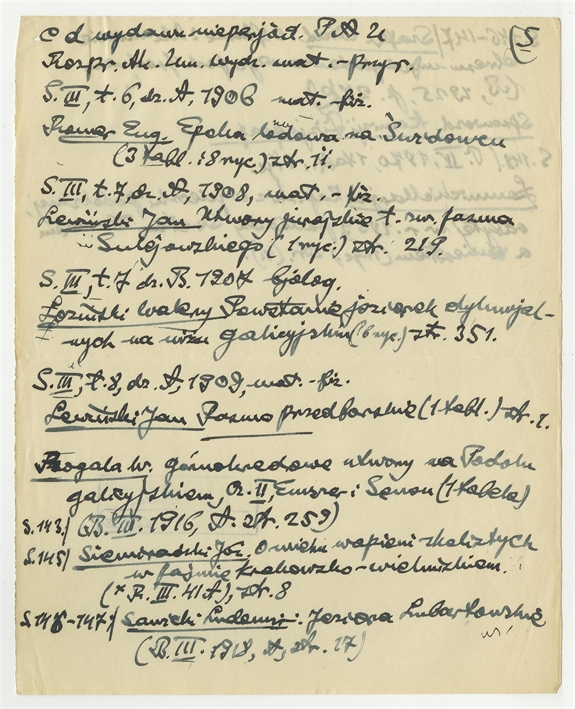 c d wydawn nieperjod. P A U (5
Rozpr. Ak. Um. wydz. mat. - przyr.
S. III, t. 6, dz. A, 1906 mat. - fiz.
Romer Eug. Epoka lodowa na Świdowcu
(3 tabl. i 8 ryc.) str. 11.
S. III, t. 7, dz. A, 1908, mat. - fiz.
Lewiński Jan Utwory jurajskie t. zw. pasma
Sulejowskiego (1 ryc.) str. 219.
S. III, t. 7 dz. B. 1907 bjolog.
Łoziński Walery Powstanie jeziorek dyluwjal-
nych na niżu galicyjskim (6 ryc.) str. 351.
S. III, t. 8, dz. A, 1909, mat. - fiz.
Lewiński Jan Pasmo przedborskie (1 tabl.) str. 1.
Rogala W. górnokredowe utwory na Podolu
galicyjskiem, Cz. II, Emszer i Senon (1 tabela)
S. 143/ (B. III. 1916, A. str. 259)
S. 145/ Siemiradzki Józ. O wieku wapieni skalistych
w paśmie krakowsko-wieluńskiem.
(R. III. 41 A), str. 8
S. 146-147/ Sawicki Ludomir: Jeziora Lubartowskie
(B. III. 1918, A, str. 17)